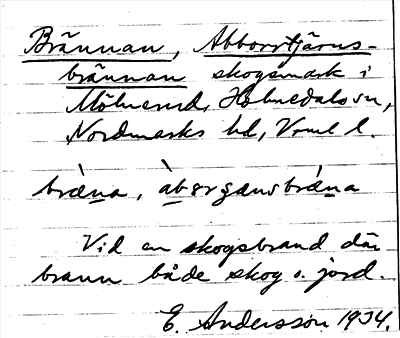 Brännan, Abborrtjärns-
brännan skogsmark i
Mölnerud, Holmedals sn,
Nordmarks hd, Vrml l.
bræ̀na, àbərʂænsbrǽna
Vid en skogsbrand där
brann både skog o. jord.
E. Andersson 1934.